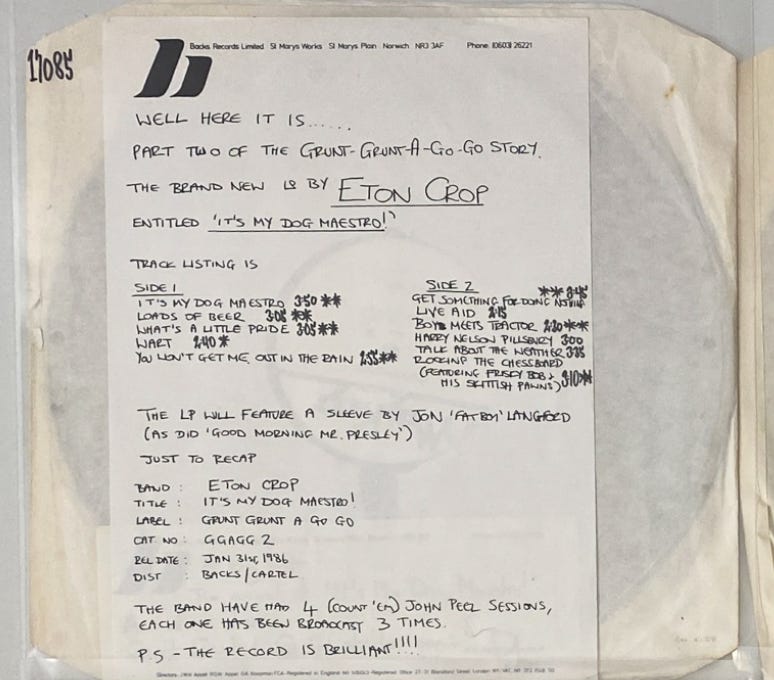 17085
Backs Records Limited St Marys Works St Marys Plain Norwich NR3 3AF Phone (0603) 26221
WELL HERE IT IS......
PART TWO OF THE GRUNT-GRUNT-A-GO-GO STORY.
THE BRAND NEW LP BY ETON CROP
ENTITLED 'IT'S MY DOG MAESTRO!'
TRACK LISTING IS
SIDE 1
IT'S MY DOG MAESTRO 3·50 **
LOADS OF BEER 3·05 **
WHAT'S A LITTLE PRIDE 3·05 **
WART 2·40 *
YOU WON'T GET ME OUT IN THE RAIN 2·55 **
SIDE 2
GET SOMETHING FOR DOING NOTHING ** 3·45
LIVE AID 2·15
BOYS MEETS TRACTOR 2·20 **
HARRY NELSON PILLSBURY 3·00
TALK ABOUT THE WEATHER 3·35
ROCKING THE CHESSBOARD
(FEATURING FRISKY BOB &
HIS SKITTISH PAWNS) 3·10 **
THE LP WILL FEATURE A SLEEVE BY JON 'FATBOY' LANGFORD
(AS DID 'GOOD MORNING MR. PRESLEY')
JUST TO RECAP
BAND : ETON CROP
TITLE : IT'S MY DOG MAESTRO!
LABEL : GRUNT GRUNT A GO GO
CAT NO : GGAGG 2
REL DATE : JAN 31st, 1986
DIST : BACKS/CARTEL
THE BAND HAVE HAD 4 (COUNT 'EM) JOHN PEEL SESSIONS,
EACH ONE HAS BEEN BROADCAST 3 TIMES.
P.S - THE RECORD IS BRILLIANT!!!!